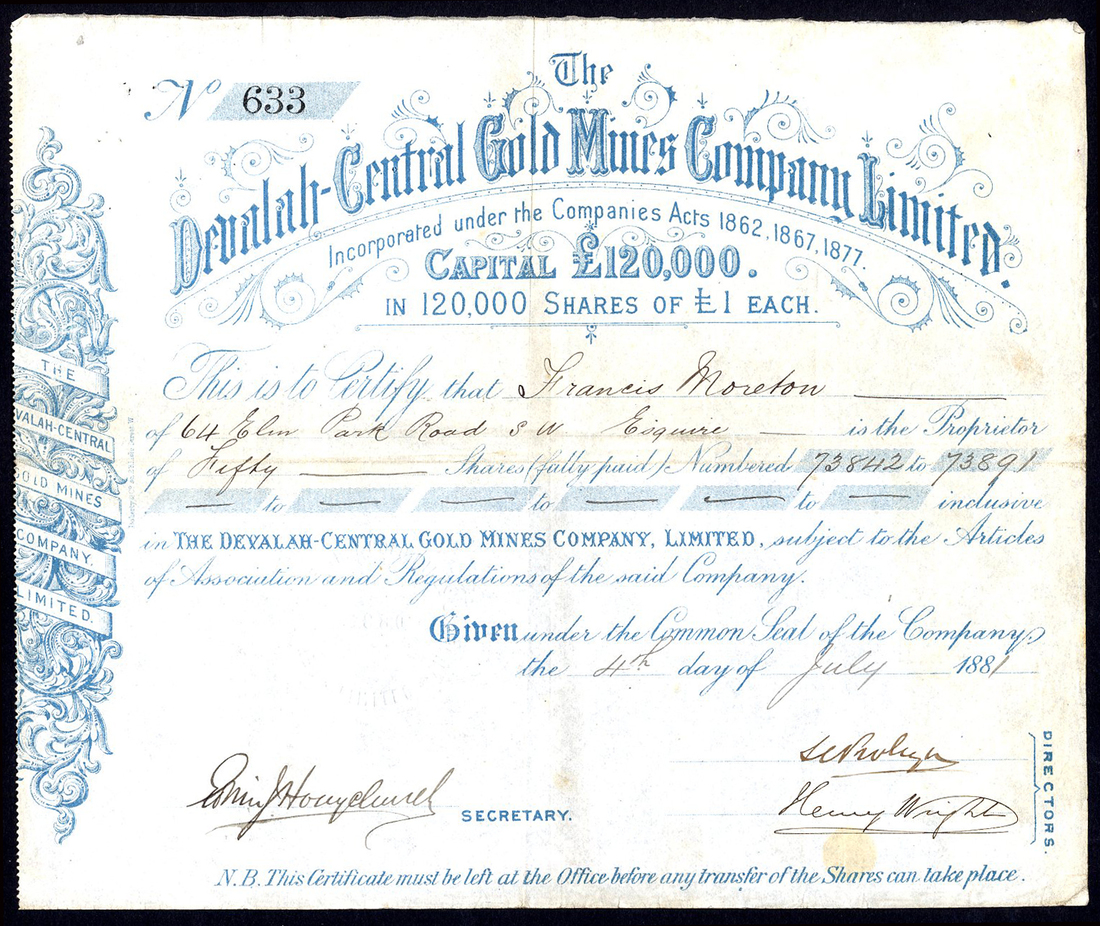 Nº 633
The
Devalah-Central Gold Mines Company Limited.
Incorporated under the Companies Acts 1862, 1867, 1877.
CAPITAL £120,000.
IN 120,000 SHARES OF £1 EACH.
This is to Certify that Francis Moreton
of 64 Elm Park Road S W Esquire is the Proprietor
of Fifty Shares (fully paid) Numbered 73842 to 73891
to to to inclusive
in THE DEVALAH-CENTRAL GOLD MINES COMPANY, LIMITED, subject to the Articles
of Association and Regulations of the said Company.
Given under the Common Seal of the Company,
the 4th day of July 1881
Henry Wright
DIRECTORS.
SECRETARY.
N.B. This Certificate must be left at the Office before any transfer of the Shares can take place.
THE
VALAH-CENTRAL
GOLD MINES
COMPANY.
LIMITED.